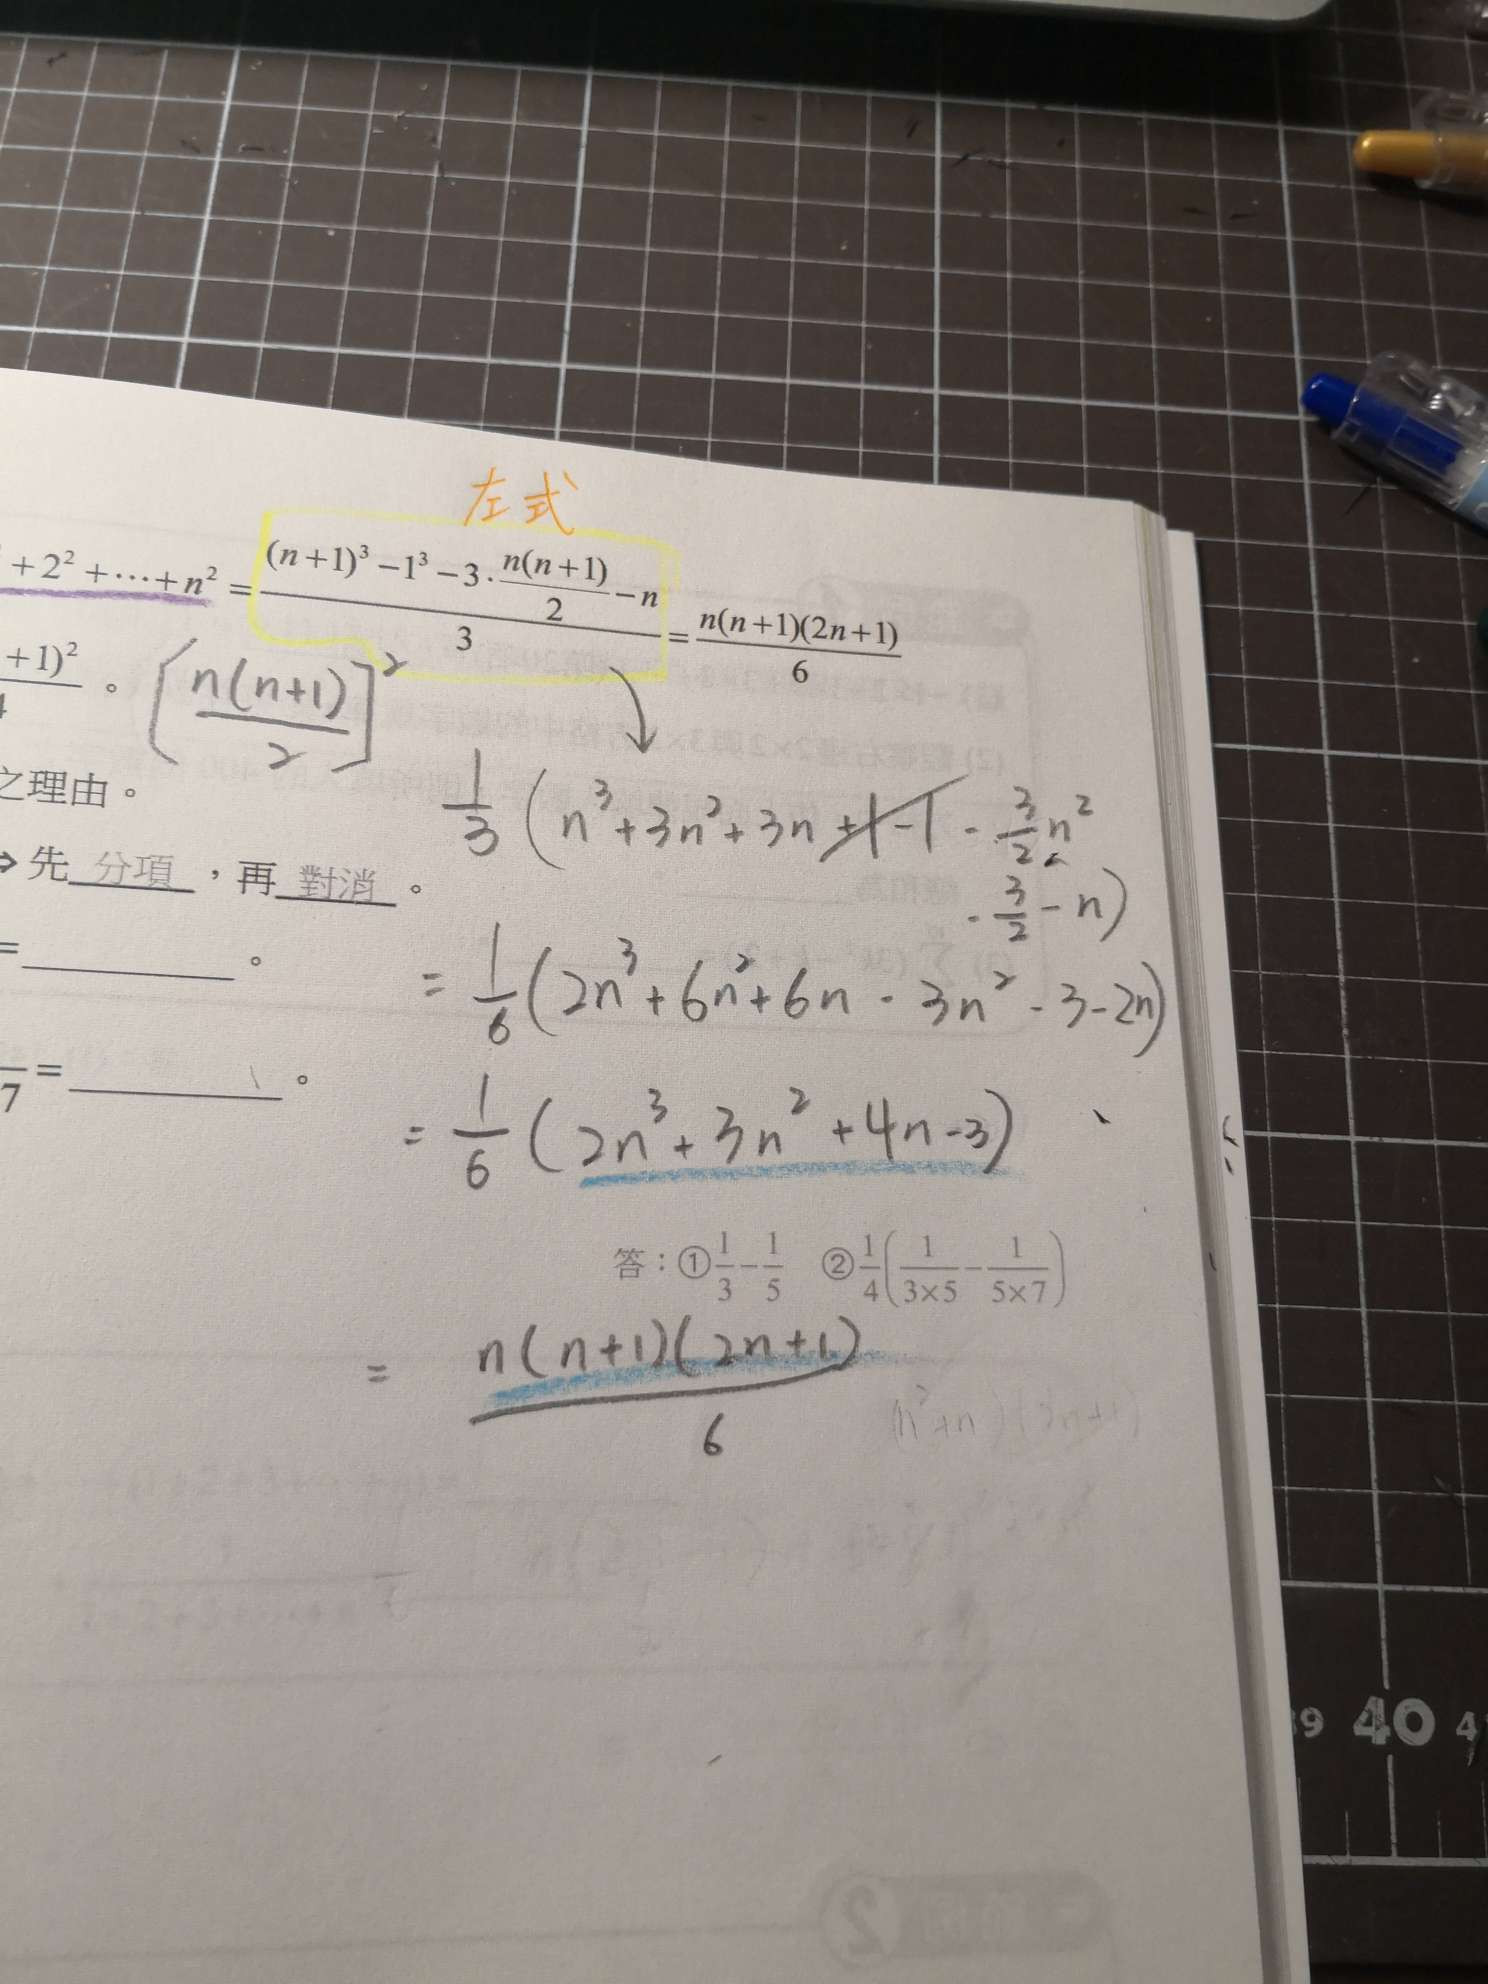 左式
+2²+⋯+n² = \frac{(n+1)³-1³-3·\frac{n(n+1)}{2}-n}{3} = \frac{n(n+1)(2n+1)}{6}
+1)²/4 。 [\frac{n(n+1)}{2}]²
之理由。
\frac{1}{3}(n³+3n²+3n+1-1-\frac{3}{2}n²
⇒先 分項 ,再 對消 。
-\frac{3}{2}-n)
=______。
=\frac{1}{6}(2n³+6n²+6n-3n²-3-2n)
7=______。
=\frac{1}{6}(2n³+3n²+4n-3)
答:①\frac{1}{3}-\frac{1}{5} ②\frac{1}{4}(\frac{1}{3×5}-\frac{1}{5×7})
=\frac{n(n+1)(2n+1)}{6}
(n²+n)(2n+1)
39 40 4